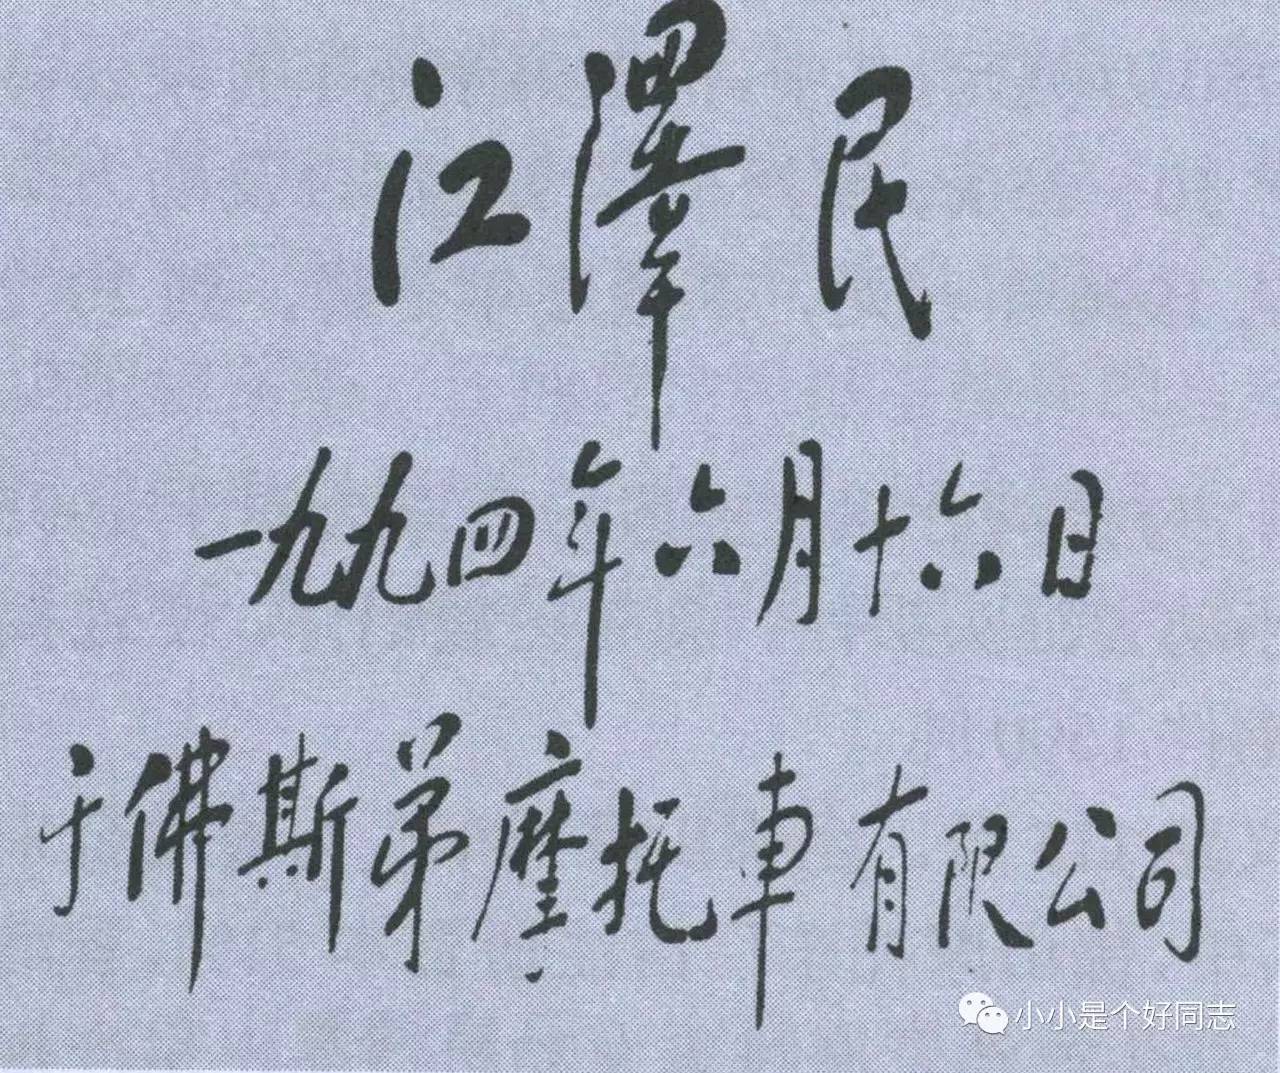 江澤民
一九九四年六月十六日
于佛斯弟摩托車有限公司
小小是个好同志